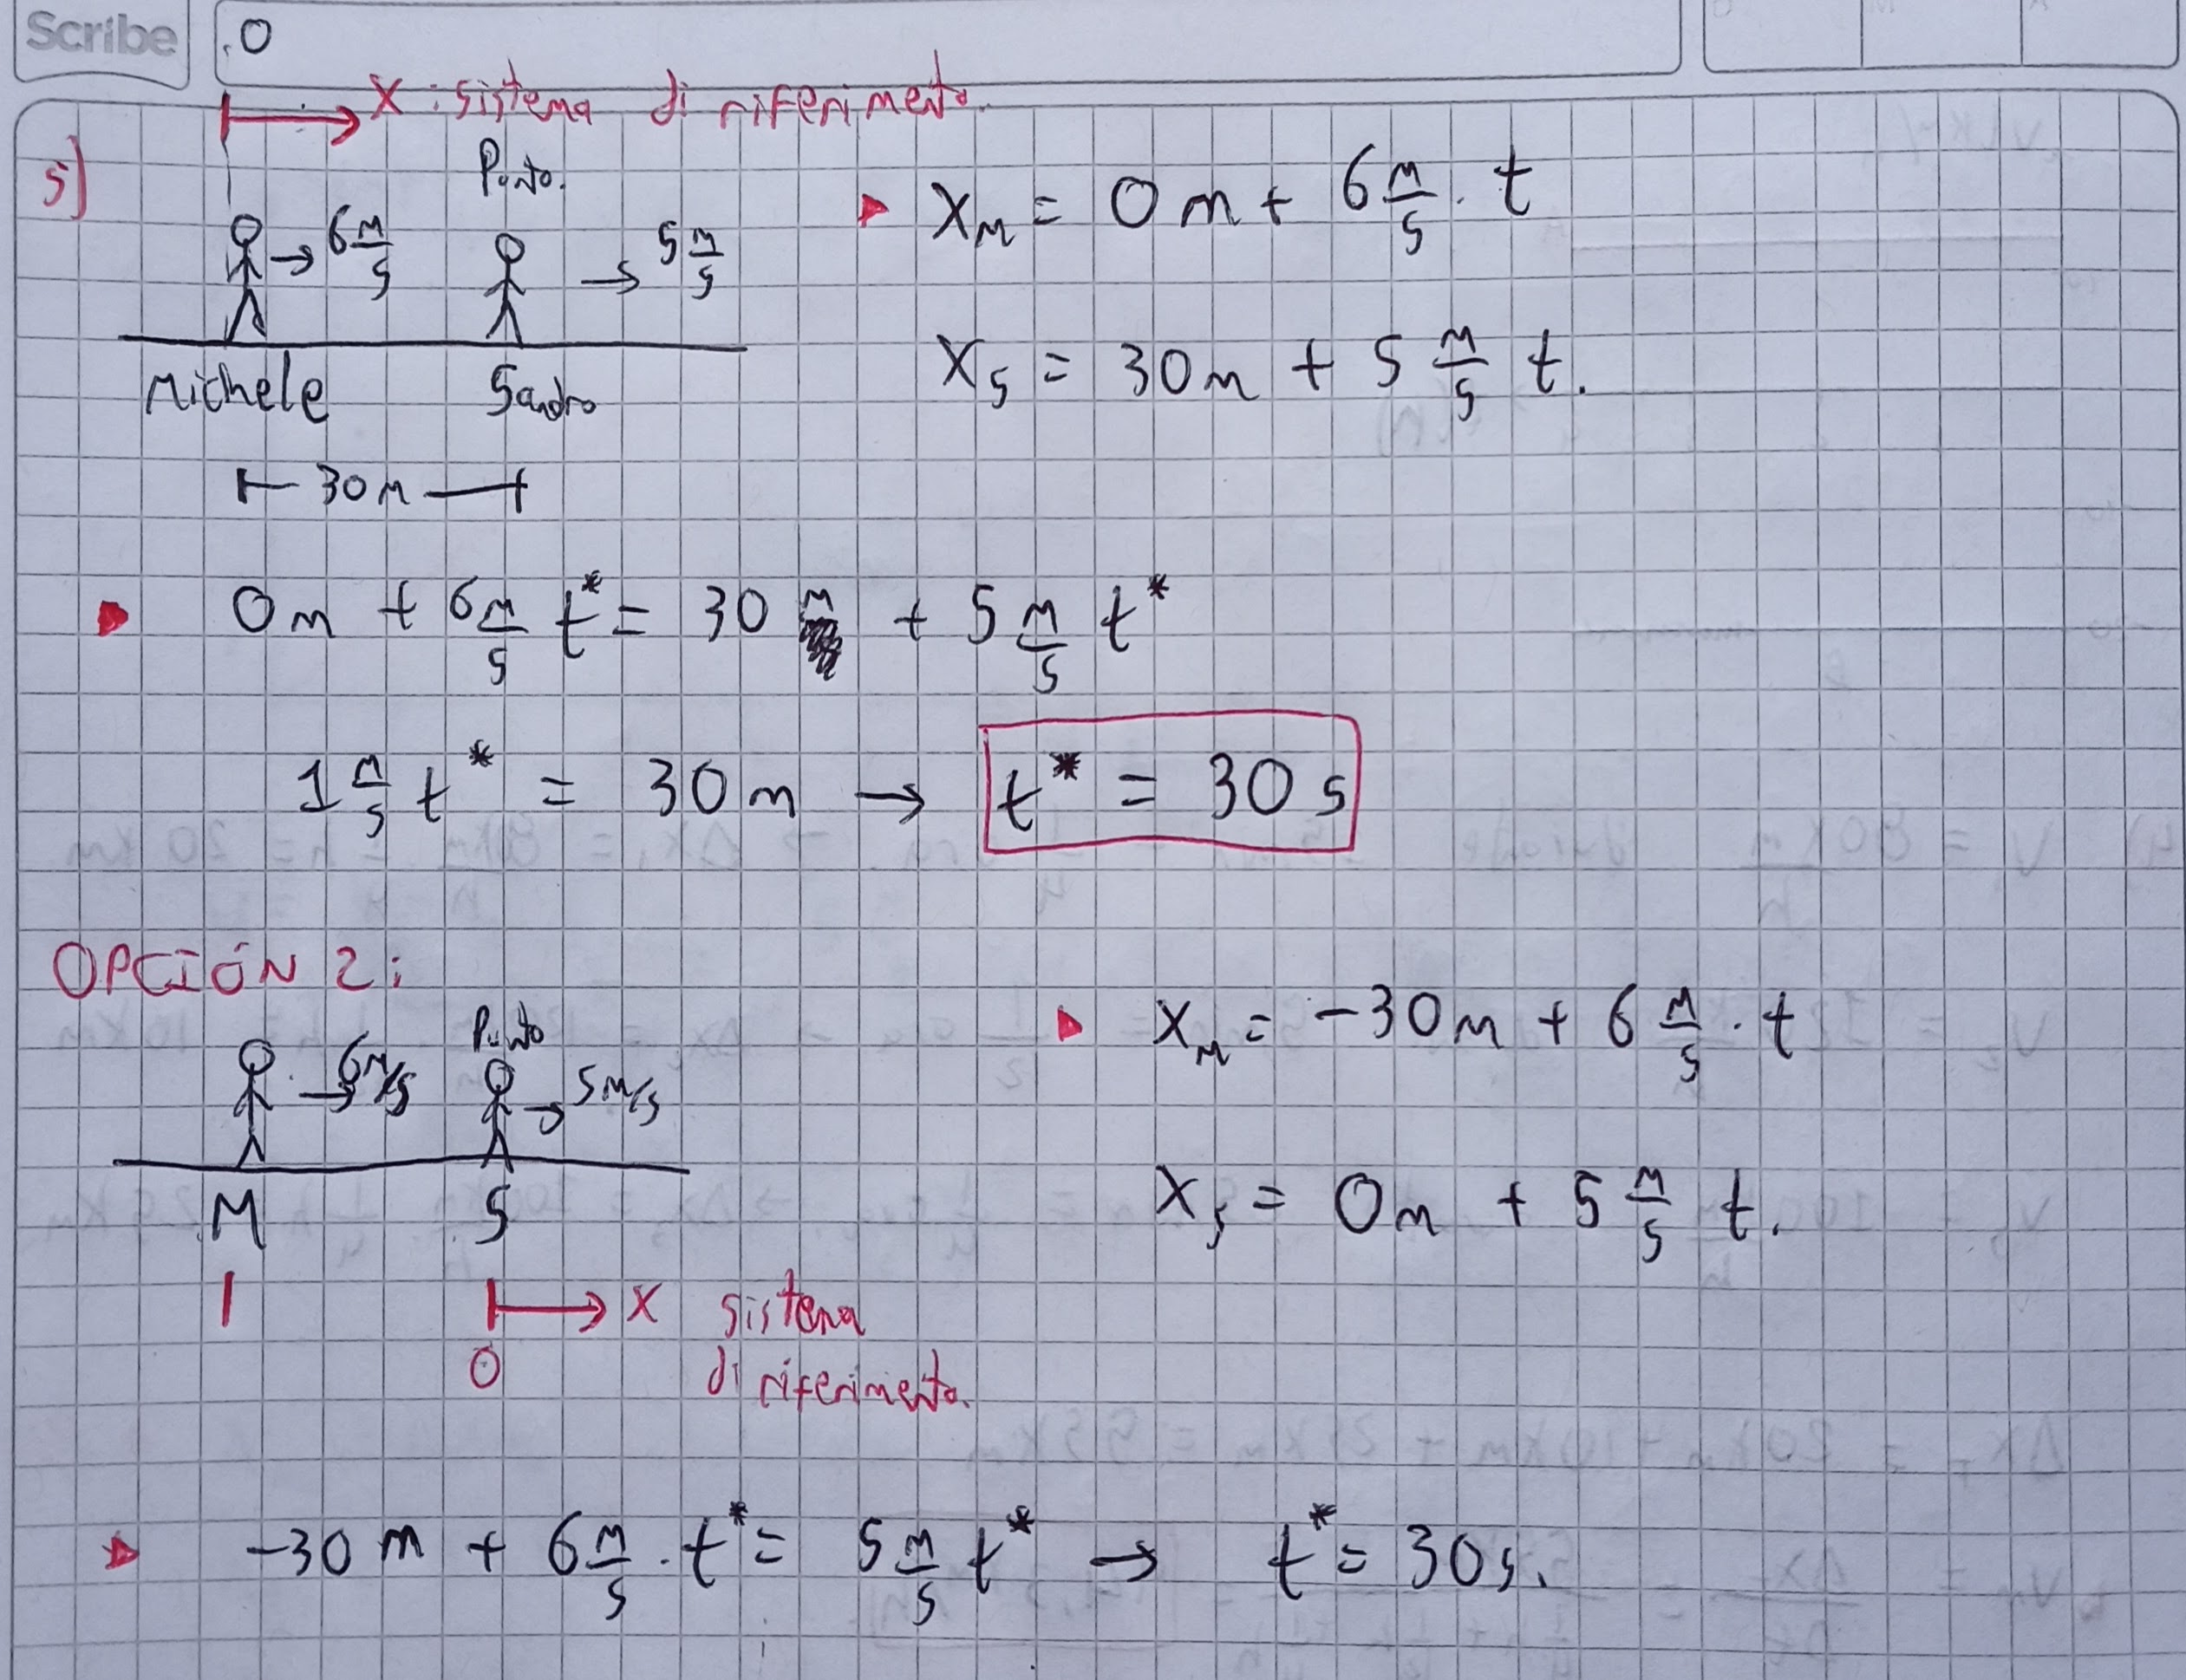 Scribe
.0
x : sistema di riferimento.
5)
Punto.
6 m/s
5 m/s
Michele
Sandro
30 m
▸ X_M = 0 m + 6 m/s · t
X_S = 30 m + 5 m/s t.
▸ 0 m + 6 m/s t* = 30 m + 5 m/s t*
1 m/s t* = 30 m → t* = 30 s
OPCIÓN 2:
Punto
6 m/s
5 m/s
M
S
x sistema
0
di riferimento.
▸ X_M = -30 m + 6 m/s · t
X_S = 0 m + 5 m/s t.
▸ -30 m + 6 m/s · t* = 5 m/s t* → t* = 30 s.